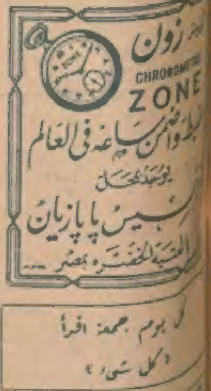 زون
CHRONOMETRE
ZONE
واضمن ساعة فى العالم
يوجد بمحل
پاپازيان
العتبة الخضره بمصر
كل يوم جمعة اقرأ
« كل شىء »